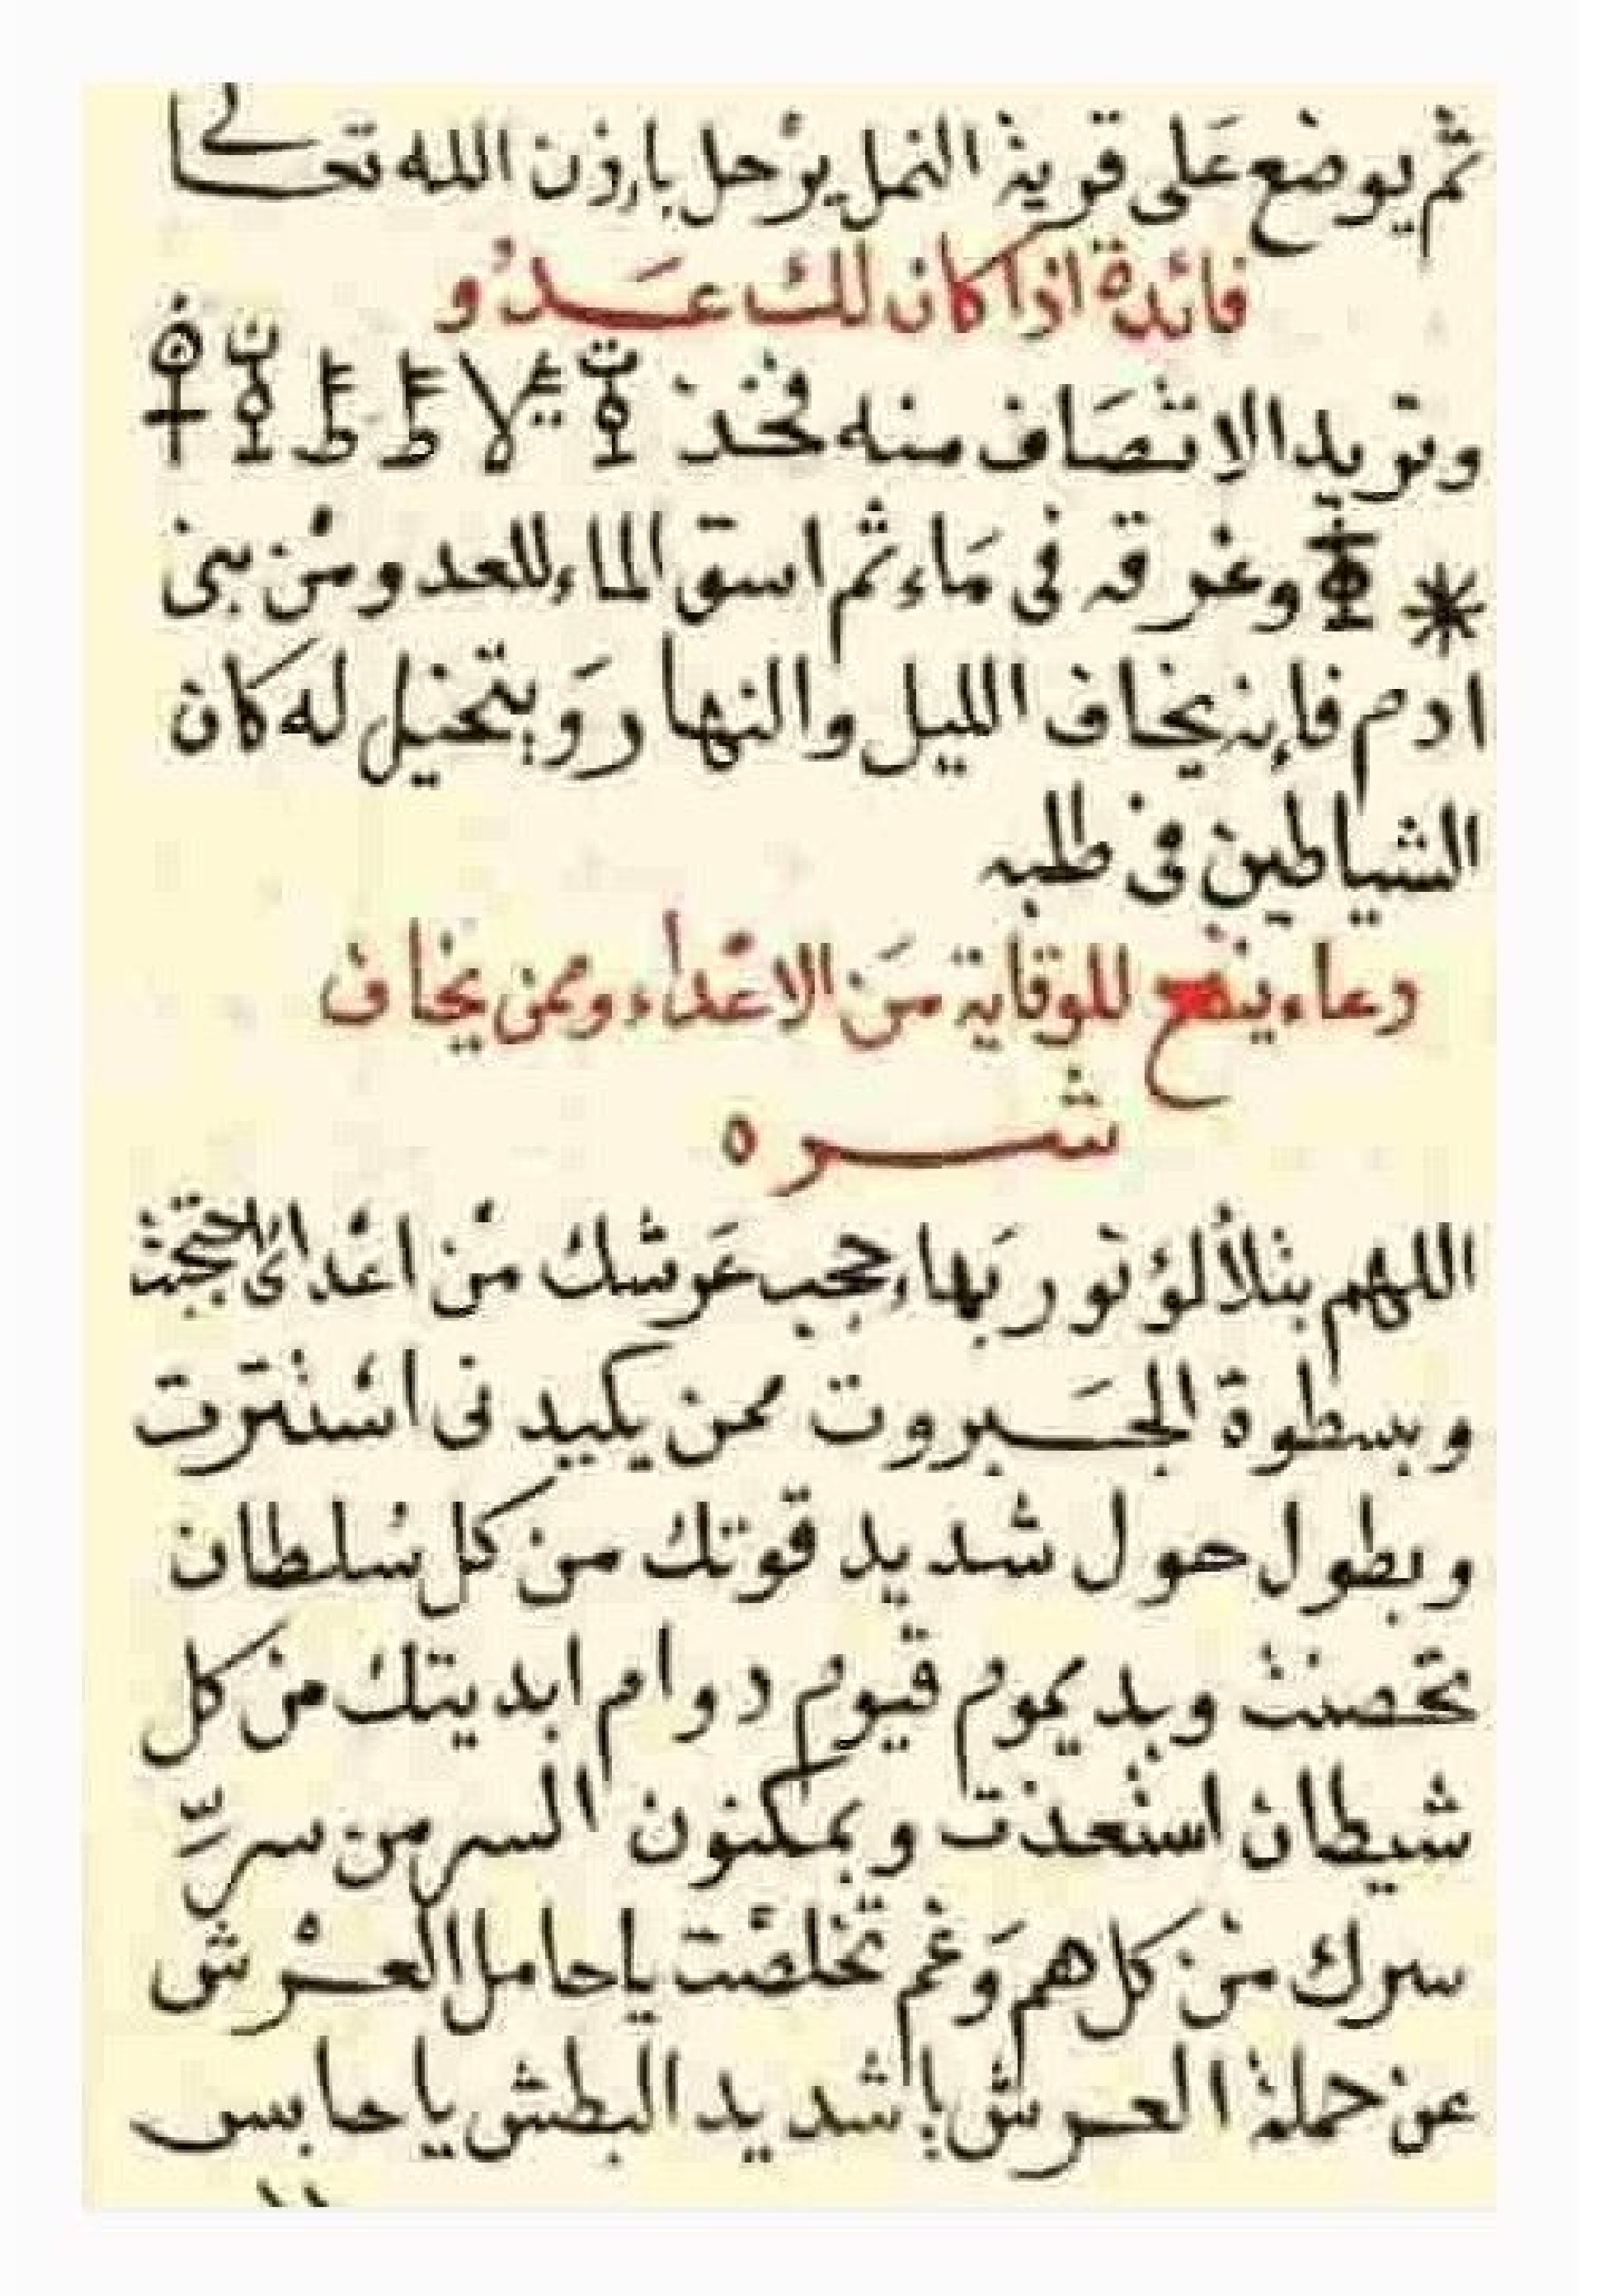 ثم يوضع على قرية النمل يرحل بإذن الله تعالى
فائدة اذا كان لك عَدُو
وتريد الانتصاف منه فخذ
وغرقه فى مَاء ثم اسق الماء للعدو من بنى
ادم فإنه يخاف الليل والنهار وَيتخيل له كان
الشياطين فى طلبه
دعاء ينفع للوقاية مَن الاعداء وممن يخاف
شره
اللهم بتلألؤ نور بَهاء حجب عَرشك من اعدائى احتجبت
وبسطوة الجَبروت ممن يكيدنى استترت
وبطول حول شديد قوتك من كل سلطان
تحصنت وبديموم قيوم دوام ابديتك من كل
شيطان استعذت وبمكنون السر من سرِّ
سرك من كل هم وَغم تخلصت ياحامل العرش
عن حملة العرش يا شديد البطش يا حابس